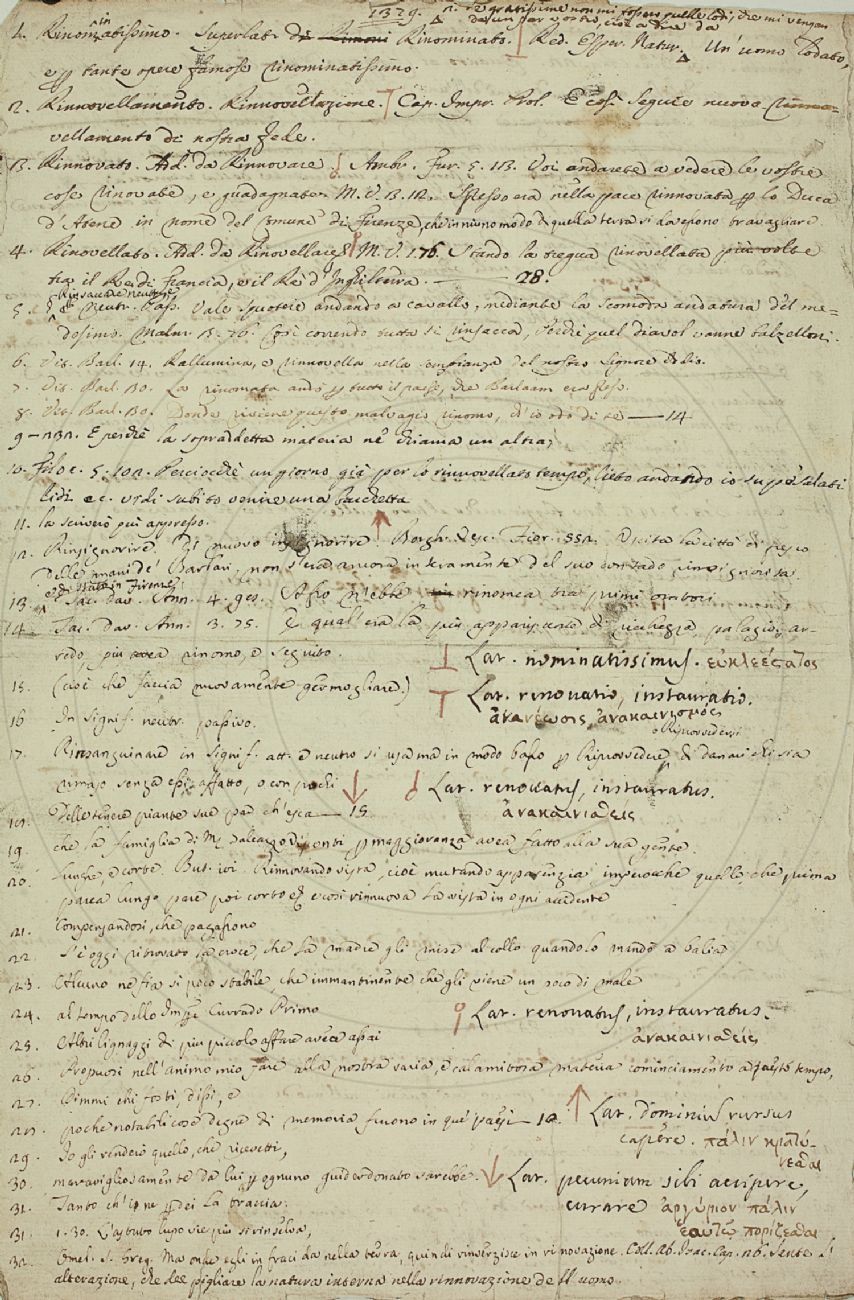 1329.
n. re gratissime non mi fossero quelle lodi, che mi vengan
da un par vostro, cioè a dire da
1. Rinominatissimo. Superlat. di Rinominato. Red. Esper. Natur. Un' uomo lodato,
e per tante opere famose rinominatissimo.
2. Rinnovellamento. Rinnovellazione. Cap. Impr. Prol. E così seguìo nuovo rinno-
vellamento di nostra fede.
3. Rinnovato. Ad. da Rinnovare. Ambr. Fur. 5. 113. Voi andarete a vedere le vostre
cose rinovate, e guadagnate. M. V. 3. 12. Spesso era nella pace rinnovata per lo Duca
d'Atene in nome del Comune di Firenze, che in niuno modo quella terra si dovessono travagliare.
4. Rinovellato. Ad. da Rinovellare. M. V. 1. 76. Stando la tregua rinovellata più volte
tra il Re di Francia, e il Re d'Inghilterra. — 28.
5. Rinsaccare neutr. e Neutr. Pass. Vale Scuotersi andando a cavallo, mediante la scomoda andatura del me-
desimo. Malm. 3. 76. Così correndo tutta si rinsacca, Perchè quel diavol vanne balzelloni.
6. Vit. Barl. 14. Rallumina, e rinnovella nella sembianza del nostro Signore Iddio.
7. Vit. Barl. 30. La rinomata andò per tutto il paese, che Barlaam era preso.
8. Vit. Barl. 30. Donde viviene questo malvagio rinomo, ch'io odo di te — 14
9 — 131. E perchè la sopraddetta materia nè chiama un altra,
10. Filoc. 5. 102. Perciocchè un giorno già per lo rinnovellato tempo, lieto andando io su pe' salati
lidi ec. vidi subito venire una barchetta
11. la scriverò più appresso.
12. Rinsignorire. Di nuovo insignorire. Borgh. Vesc. Fior. 552. Uscita la città di fresco
delle mani de' Barbari, non s'era ancora interamente del suo contado rinsignorita
13. e di Stato in Firenze Tac. Dav. Ann. 4. 90. Afro n'ebbe rinomea tra' primi oratori
14. Tac. Dav. Ann. 3. 75. E qual' era la più appariscente di ricchezza, palagio, ar-
redo, più avea rinomo, e seguito.
Lat. nominatissimus. εὐκλεέστατος
15. (cioè che faccia nuovamente germogliare.)
Lat. renovatio, instauratio.
ἀνανέωσις, ἀνακαινισμός
16 In signif. neutr. passivo.
o Riprovvedersi
17. Rinsanguinare in signif. att. e neutro si usa ma in modo basso per Riprovvedere di danari chi sia
rimaso senza essi affatto, o con pochi
Lat. renovatus, instauratus.
ἀνακαινισθείς
18. Delle tenere piante sue par ch'esca — 15
19. che la famiglia di M. Dalcazzo Dipenti per maggioranza avea fatto alla sua gente.
20. lunghe, e corte. But. ivi. Rinnovando vista, cioè mutando apparenzia: imperocchè quello, che prima
parea lungo pare poi corto e così rinnuova la vista in ogni accidente
21. Compensandosi, che pagassono
22. S'è oggi ritrovato la croce, che la madre gli mise al collo quando lo mandò a balia
23. Alcuno ne fia sì poco stabile, che immantinente che gli viene un poco di male
24. al tempo dello Imp.re Currado Primo
Lat. renovatus, instauratus.
ἀνακαινισθείς
25. Altri lignaggi di più piccolo affare avea assai
26. Proposi nell'animo mio fare alla nostra varia, e calamitosa materia cominciamento a questo tempo,
27. Dimmi chi fosti, dissi, e
28. poche notabili cose degne di memoria furono in que' paesi — 12
Lat. dominus rursus
capere. πάλιν κρατύ-
νεσθαι
29. Io gli renderò quello, che ricevetti,
30. maravigliosamente da lui per ognuno guiderdonato sarebbe.
Lat. pecuniam sibi accipere,
curare ἀργύριον πάλιν
ἑαυτῷ πορίζεσθαι
31. Tanto ch'io ne perdei la traccia.
31. 1. 30. L'astuto lupo vie più si rinselva,
32. Omel. S. Greg. Ma onde egli infracida nella terra, quindi rinverzisce in rinovazione. Coll. Ab. Isac. Cap. 26. Sente l'
alterazione, che dee pigliare la natura interna nella rinnovazione dell uomo.